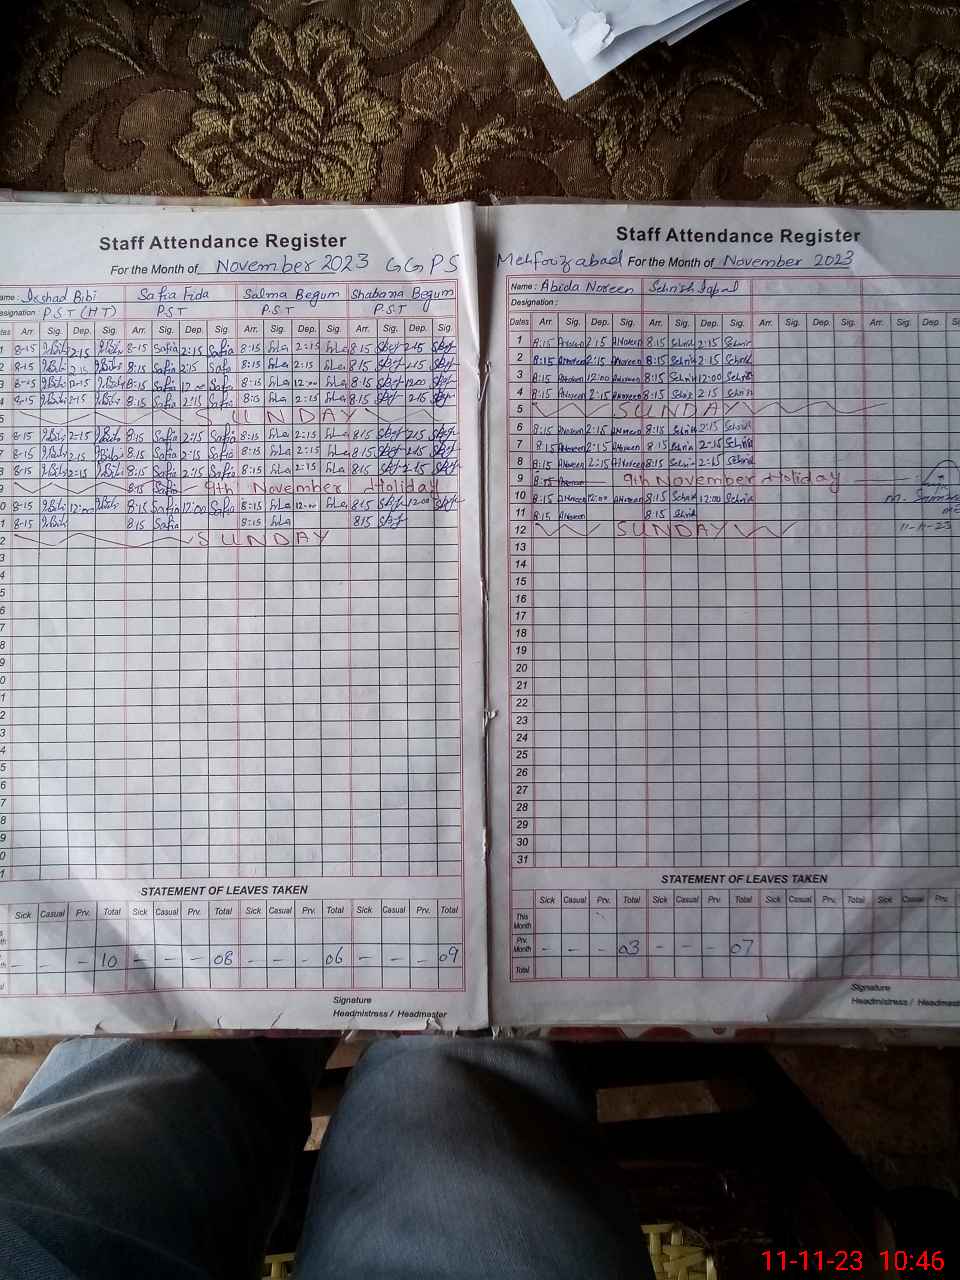 Staff Attendance Register
For the Month of November 2023 GGPS
ame: Irshad Bibi Safia Fida Salma Begum Shabana Begum
esignation: P.S.T (HT) PST P.S.T P.S.T
Dates Arr. Sig. Dep. Sig. Arr. Sig. Dep. Sig. Arr. Sig. Dep. Sig. Arr. Sig. Dep. Sig.
1 8-15 2:15 8-15 Safia 2:15 Safia 8:15 2:15 8:15 2:15
2 8-15 2:15 8:15 Safia 2:15 Safia 8:15 2:15 8:15 2:15
3 8-15 12-15 8:15 Safia 12:00 Safia 8:15 12:00 8:15 12:00
4 8-15 2:15 8:15 Safia 2:15 Safia 8:15 2:15 8:15 2:15
5 SUNDAY
6 8-15 2:15 8:15 Safia 2:15 Safia 8:15 2:15 8:15 2:15
7 8-15 2:15 8:15 Safia 2:15 Safia 8:15 2:15 8:15 2:15
8 8-15 2:15 8:15 Safia 2:15 Safia 8:15 2:15 8:15 2:15
9 8:15 Safia 9th November Holiday
0 8-15 12:00 8:15 Safia 12:00 Safia 8:15 12:00 8:15 12:00
1 8-15 8:15 Safia 8:15 8:15
2 SUNDAY
3
4
5
6
7
8
9
0
1
2
3
4
5
6
7
8
9
0
1
STATEMENT OF LEAVES TAKEN
Sick Casual Prv. Total Sick Casual Prv. Total Sick Casual Prv. Total Sick Casual Prv. Total
– – – 10 – – – 08 – – – 06 – – – 09
Signature
Headmistress / Headmaster
Staff Attendance Register
Mehfoozabad For the Month of November 2023
Name: Abida Noreen Sehrish Iqbal
Designation:
Dates Arr. Sig. Dep. Sig. Arr. Sig. Dep. Sig. Arr. Sig. Dep. Sig. Arr. Sig. Dep.
1 8:15 ANoreen 2:15 ANoreen 8:15 Sehrish 2:15 Sehrish
2 8:15 ANoreen 2:15 ANoreen 8:15 Sehrish 2:15 Sehrish
3 8:15 ANoreen 12:00 ANoreen 8:15 Sehrish 12:00 Sehrish
4 8:15 ANoreen 2:15 ANoreen 8:15 Sehrish 2:15 Sehrish
5 SUNDAY
6 8:15 ANoreen 2:15 ANoreen 8:15 Sehrish 2:15 Sehrish
7 8:15 ANoreen 2:15 ANoreen 8:15 Sehrish 2:15 Sehrish
8 8:15 ANoreen 2:15 ANoreen 8:15 Sehrish 2:15 Sehrish
9 8:15 ANoreen 9th November Holiday
10 8:15 ANoreen 12:00 ANoreen 8:15 Sehrish 12:00 Sehrish
11 8:15 ANoreen 8:15 Sehrish
12 SUNDAY 11-11-23
13
14
15
16
17
18
19
20
21
22
23
24
25
26
27
28
29
30
31
STATEMENT OF LEAVES TAKEN
Sick Casual Prv. Total Sick Casual Prv. Total Sick Casual Prv. Total Sick Casual Prv.
This Month
Prv. Month – – – 03 – – – 07
Total
Signature
Headmistress / Headmast
11-11-23 10:46